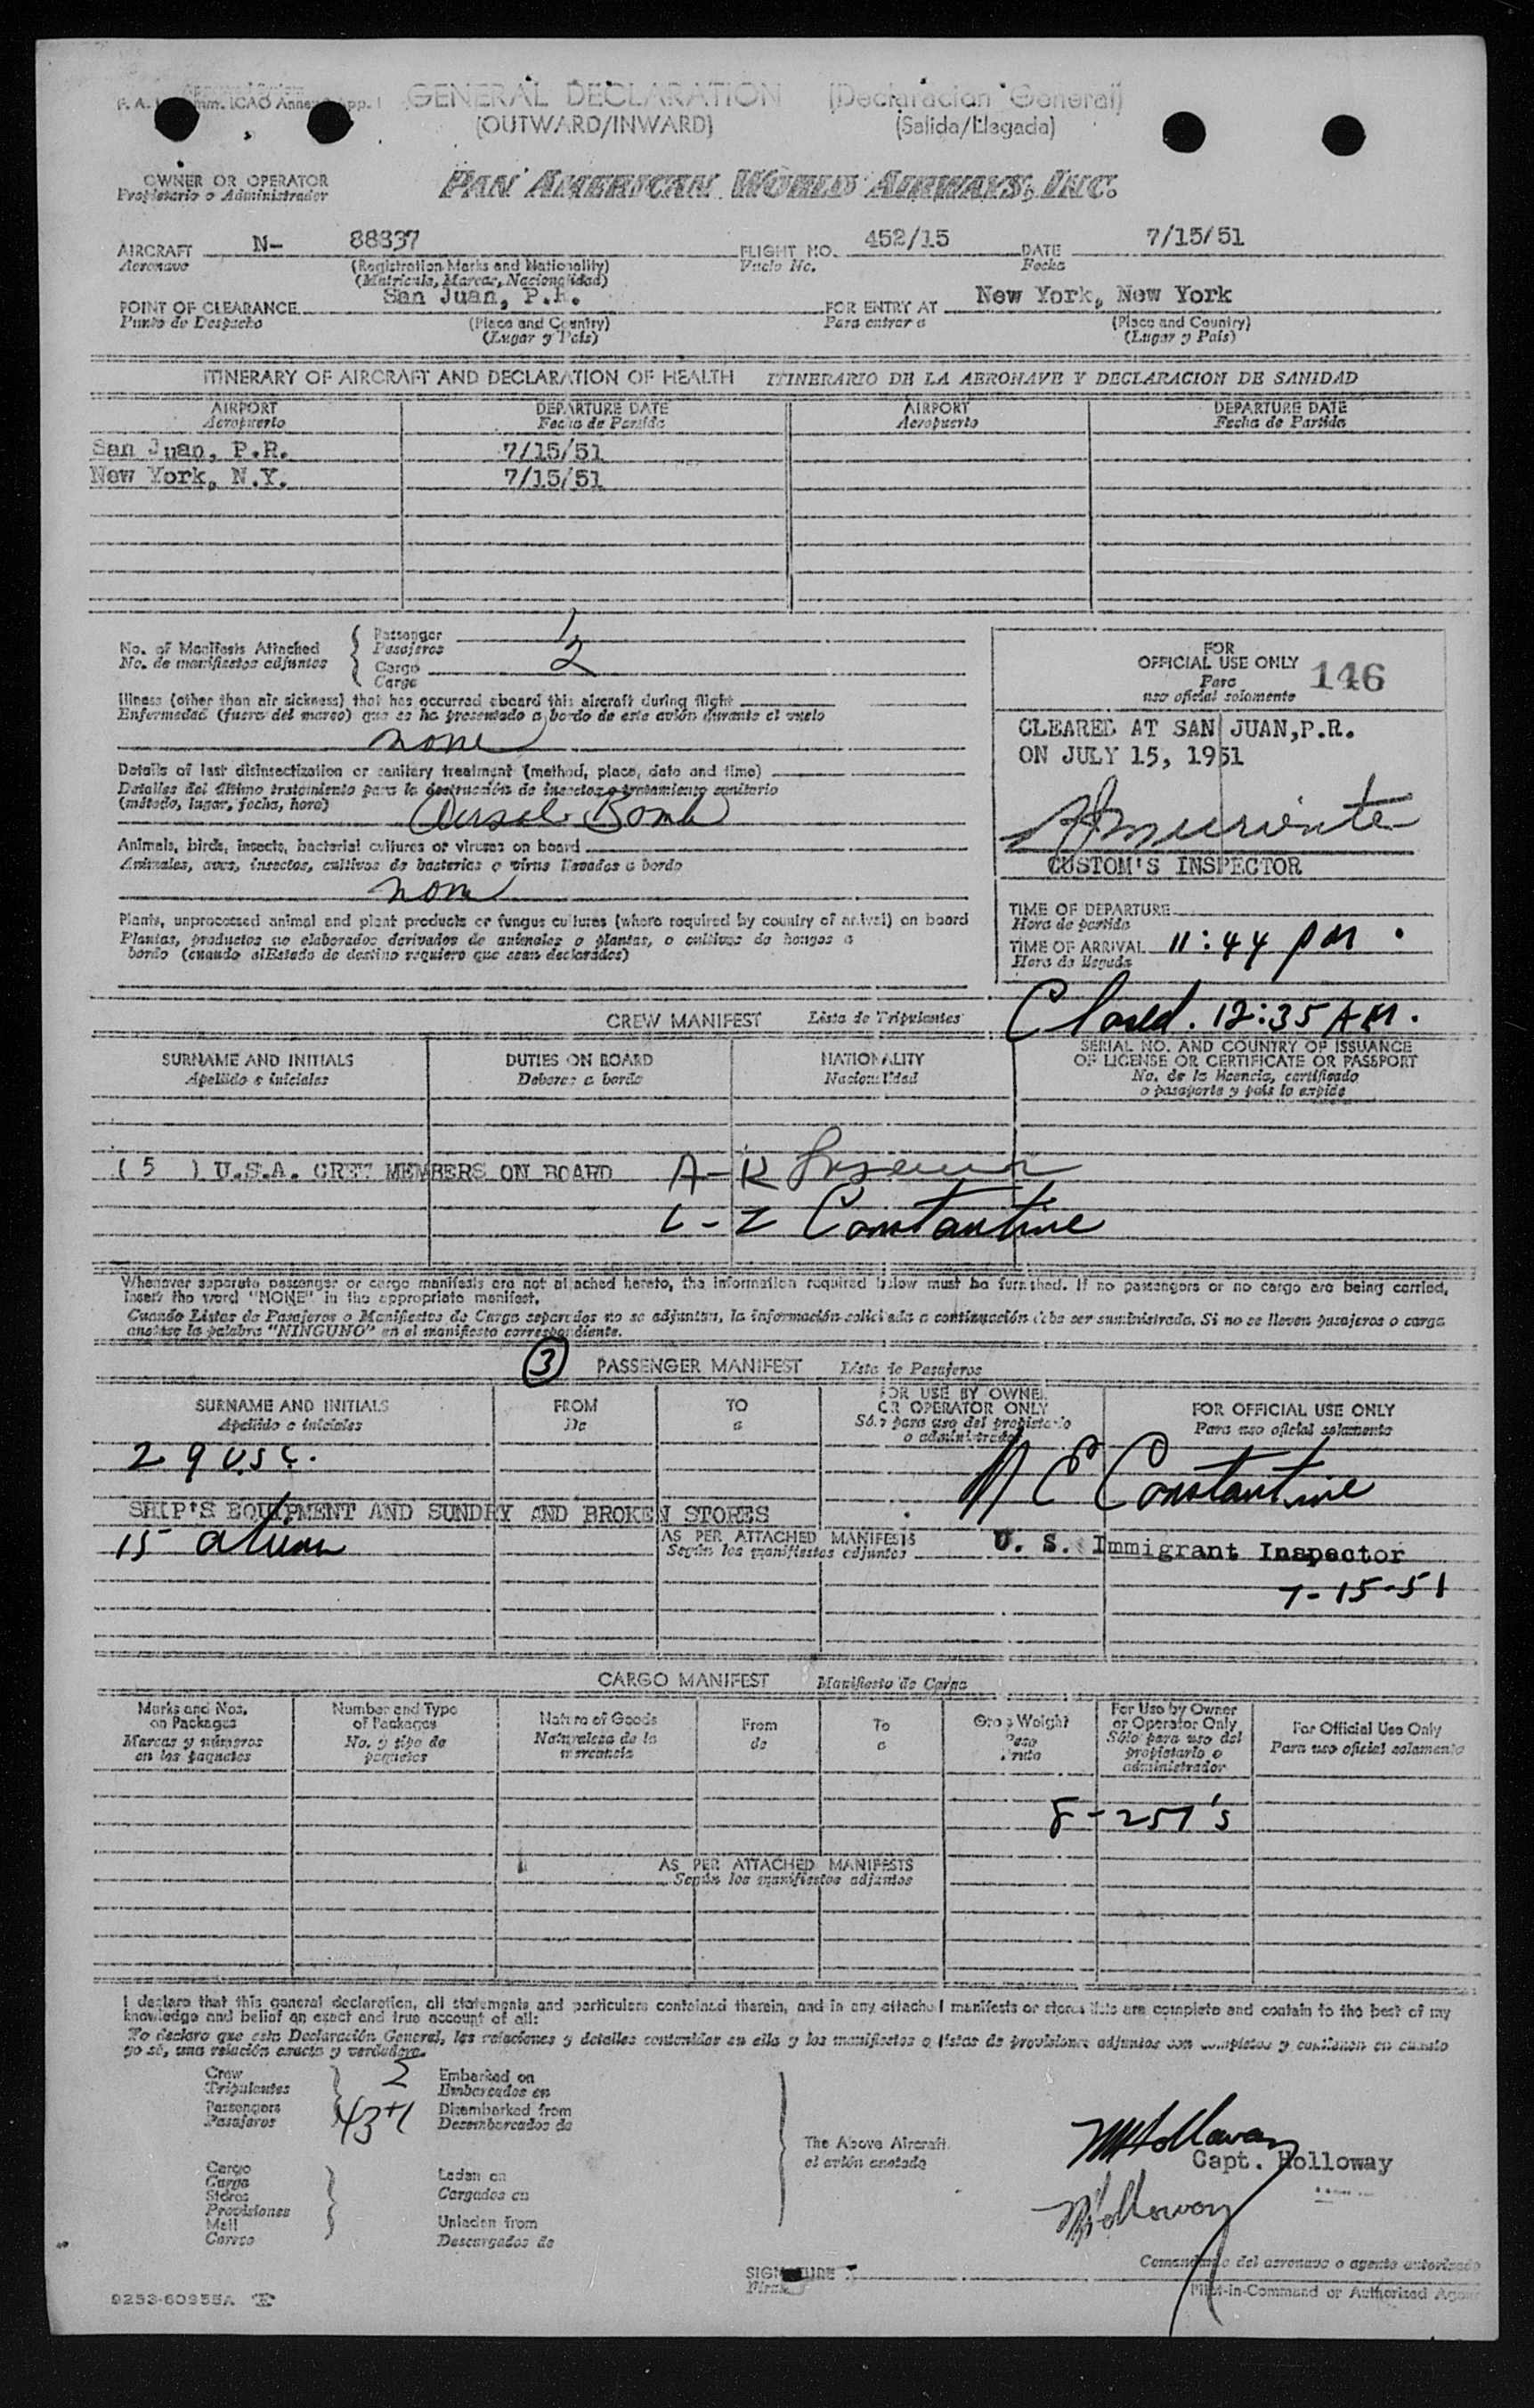 GENERAL DECLARATION (Declaracion General)
(OUTWARD/INWARD) (Salida/Llegada)
OWNER OR OPERATOR
Propietario o Administrador
PAN AMERICAN WORLD AIRWAYS, INC.
AIRCRAFT N- 88837 FLIGHT NO. 452/15 DATE 7/15/51
Aeronave (Registration Marks and Nationality) Vuelo No. Fecha
(Matricula, Marcas, Nacionalidad)
POINT OF CLEARANCE San Juan, P.R. FOR ENTRY AT New York, New York
Punto de Despacho (Place and Country) Para entrar a (Place and Country)
(Lugar y País) (Lugar y País)
ITINERARY OF AIRCRAFT AND DECLARATION OF HEALTH ITINERARIO DE LA AERONAVE Y DECLARACION DE SANIDAD
AIRPORT DEPARTURE DATE AIRPORT DEPARTURE DATE
Aeropuerto Fecha de Partida Aeropuerto Fecha de Partida
San Juan, P.R. 7/15/51
New York, N.Y. 7/15/51
No. of Manifests Attached
No. de manifiestos adjuntos
Passenger 1
Pasajeros
Cargo 2
Carga
Illness (other than air sickness) that has occurred aboard this aircraft during flight
Enfermedad (fuera del mareo) que se ha presentado a bordo de este avión durante el vuelo
none
Details of last disinsectization or sanitary treatment (method, place, date and time)
Detalles del último tratamiento para la destrucción de insectos o tratamiento sanitario
(método, lugar, fecha, hora)
Bomb
Animals, birds, insects, bacterial cultures or viruses on board
Animales, aves, insectos, cultivos de bacterias o virus llevados a bordo
none
Plants, unprocessed animal and plant products or fungus cultures (where required by country of arrival) on board
Plantas, productos no elaborados derivados de animales o plantas, o cultivos de hongos a
bordo (cuando el Estado de destino requiere que sean declarados)
FOR
OFFICIAL USE ONLY 146
Para
uso oficial solamente
CLEARED AT SAN JUAN,P.R.
ON JULY 15, 1951
CUSTOM'S INSPECTOR
TIME OF DEPARTURE
Hora de partida
TIME OF ARRIVAL 11:44 PM
Hora de llegada
12:35 AM.
CREW MANIFEST Lista de Tripulantes
SURNAME AND INITIALS DUTIES ON BOARD NATIONALITY SERIAL NO. AND COUNTRY OF ISSUANCE
OF LICENSE OR CERTIFICATE OR PASSPORT
Apellido e iniciales Deberes a bordo Nacionalidad No. de la licencia, certificado
o pasaporte y país lo expide
( 5 ) U.S.A. CREW MEMBERS ON BOARD A-R
Constantine
Whenever separate passenger or cargo manifests are not attached hereto, the information required below must be furnished. If no passengers or no cargo are being carried,
insert the word "NONE" in the appropriate manifest.
Cuando Listas de Pasajeros o Manifiestos de Carga separados no se adjuntan, la información solicitada a continuación debe ser suministrada. Si no se lleven pasajeros o carga
anótese la palabra "NINGUNO" en el manifiesto correspondiente.
3 PASSENGER MANIFEST Lista de Pasajeros
SURNAME AND INITIALS FROM TO FOR USE BY OWNER
OR OPERATOR ONLY FOR OFFICIAL USE ONLY
Apellido e iniciales De a Sólo para uso del propietario
o administrador Para uso oficial solamente
29 USC.
Constantine
SHIP'S EQUIPMENT AND SUNDRY AND BROKEN STORES
15 alien AS PER ATTACHED MANIFESTS U. S. Immigrant Inspector
Según los manifiestos adjuntos
7-15-51
CARGO MANIFEST Manifiesto de Carga
Marks and Nos.
on Packages
Marcas y números
en los paquetes
Number and Type
of Packages
No. y tipo de
paquetes
Nature of Goods
Naturaleza de la
mercancia
From
de
To
a
Gross Weight
Peso
Bruto
For Use by Owner
or Operator Only
Sólo para uso del
propietario o
administrador
For Official Use Only
Para uso oficial solamente
8-257's
AS PER ATTACHED MANIFESTS
Según los manifiestos adjuntos
I declare that this general declaration, all statements and particulars contained therein, and in any attached manifests or stores lists are complete and contain to the best of my
knowledge and belief an exact and true account of all:
Yo declaro que esta Declaración General, las relaciones y detalles contenidos en ella y los manifiestos o listas de provisiones adjuntos son completos y contienen en cuanto
yo sé, una relación exacta y verdadera.
Crew Embarked on
Tripulantes Embarcados en
Passengers 43+1 Disembarked from
Pasajeros Desembarcados de
The Above Aircraft
el avión anotado
Cargo
Carga
Stores
Provisiones
Mail
Correo
Laden on
Cargados en
Unladen from
Descargados de
Holloway
Capt. Holloway
Holloway
SIGNATURE
Firma
Comandante del aeronave o agente autorizado
Pilot-in-Command or Authorized Agent
9253-60955A